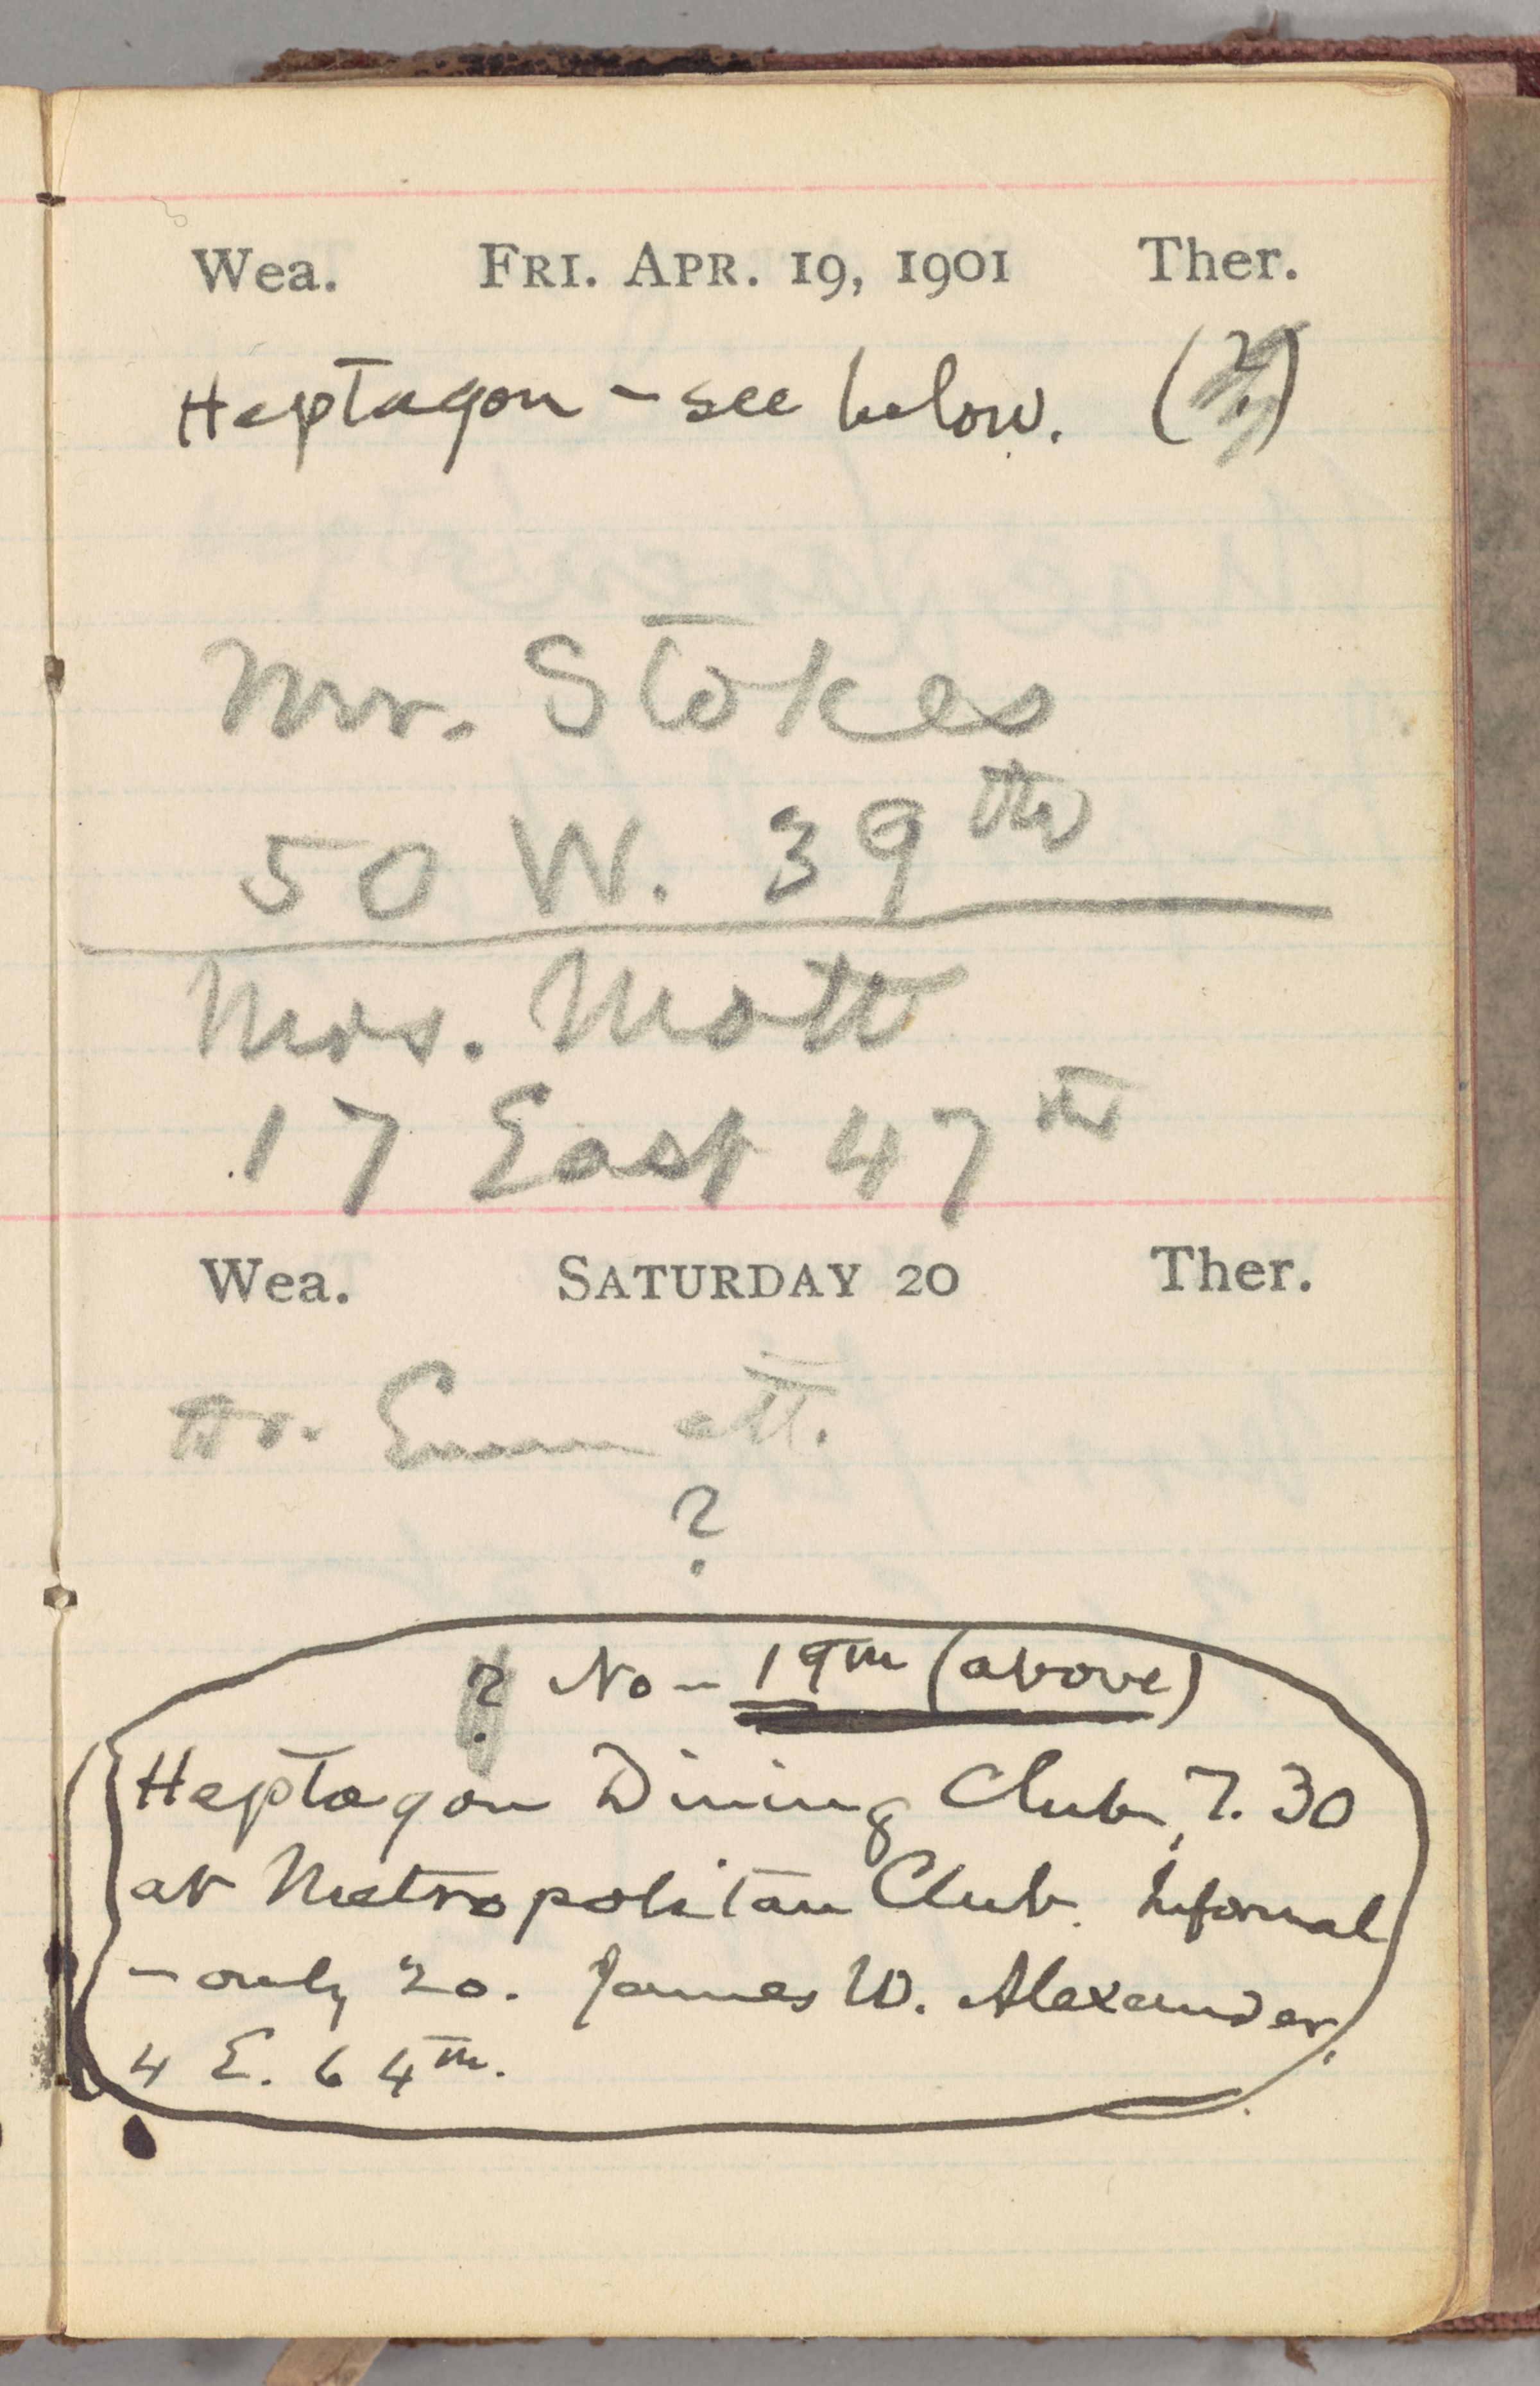 Wea. FRI. APR. 19, 1901 Ther.
Heptagon - see below. (?)
Mr. Stokes
50 W. 39th
Mrs. Mott
17 East 47th
Wea. SATURDAY 20 Ther.
Dr. Emmett.
?
? No - 19th (above)
Heptagon Dining Club, 7.30
at Metropolitan Club. Informal
- only 20. James W. Alexander,
4 E. 64th.